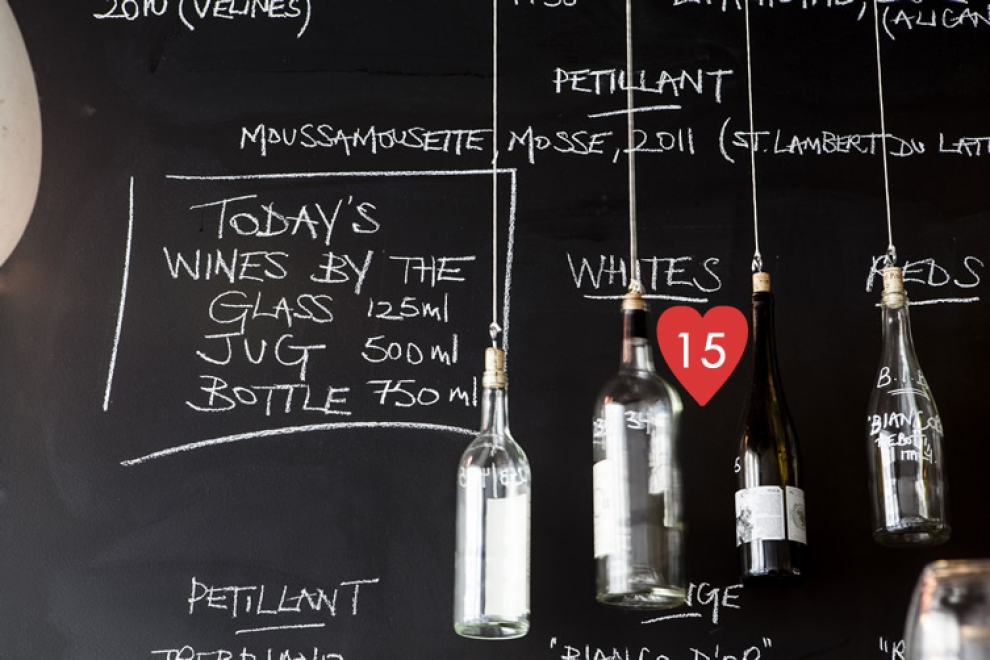 2010 (VELINES)
PETILLANT
MOUSSAMOUSETTE, MOSSE, 2011 (ST. LAMBERT DU LATT
TODAY'S
WINES BY THE
GLASS 125ml
JUG 500ml
BOTTLE 750ml
WHITES
REDS
15
B.I.
"BIANCO
ITALY
PETILLANT
"BIANCO D'OR"